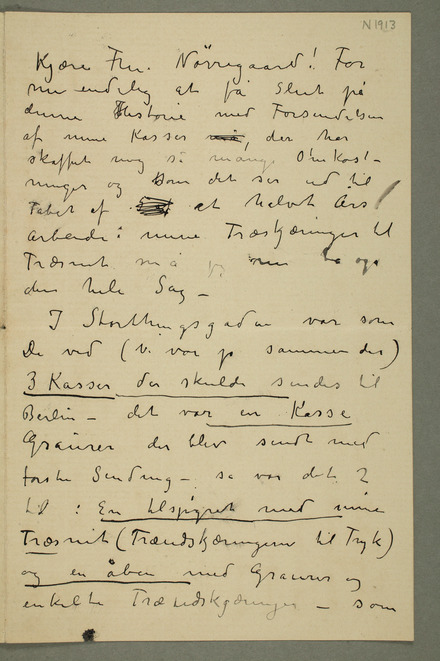 N 1913
Kjære Frk. Nørregaard! For
nu endelig at få Slut på
denne Historie med Forsendelsen
af mine Kasser, der har
skaffet mig så mange Omkost-
ninger og som det ser ud til
Tabet af et halvt Års
Arbeide: mine Træskjæringer til
Træsnit må jeg nu ta op
den hele Sag –
I Storthingsgaden var som
De ved (vi var jo sammen der)
3 Kasser der skulde sendes til
Berlin – det var en Kasse
Gravurer der blev sendt med
første Sending – så var det 2
til : En tilspigret med mine
Træsnit (Træudskjæringerne til Tryk)
og en åben med Gravurer og
enkelte Træudskjæringer – som